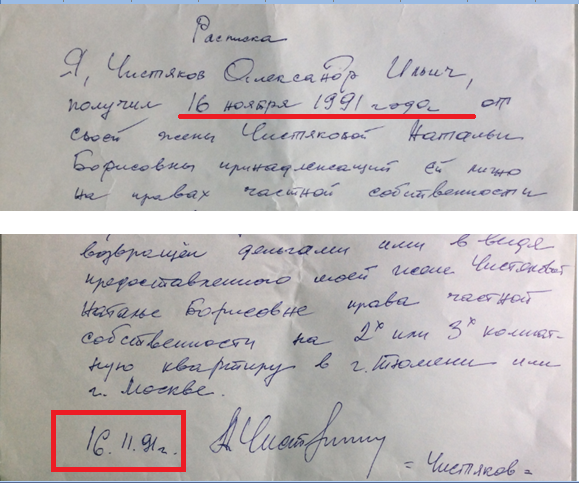 Расписка
Я, Чистяков Александр Ильич,
получил 16 ноября 1991 года от
своей жены Чистяковой Натальи
Борисовны принадлежащий ей лично
на правах частной собственности
возвращён деньгами или в виде
предоставленного моей жене Чистяковой
Наталье Борисовне права частной
собственности на 2х или 3х комнат-
ную квартиру в г. Тюмени или
г. Москве.
16.11.91г.
= Чистяков =